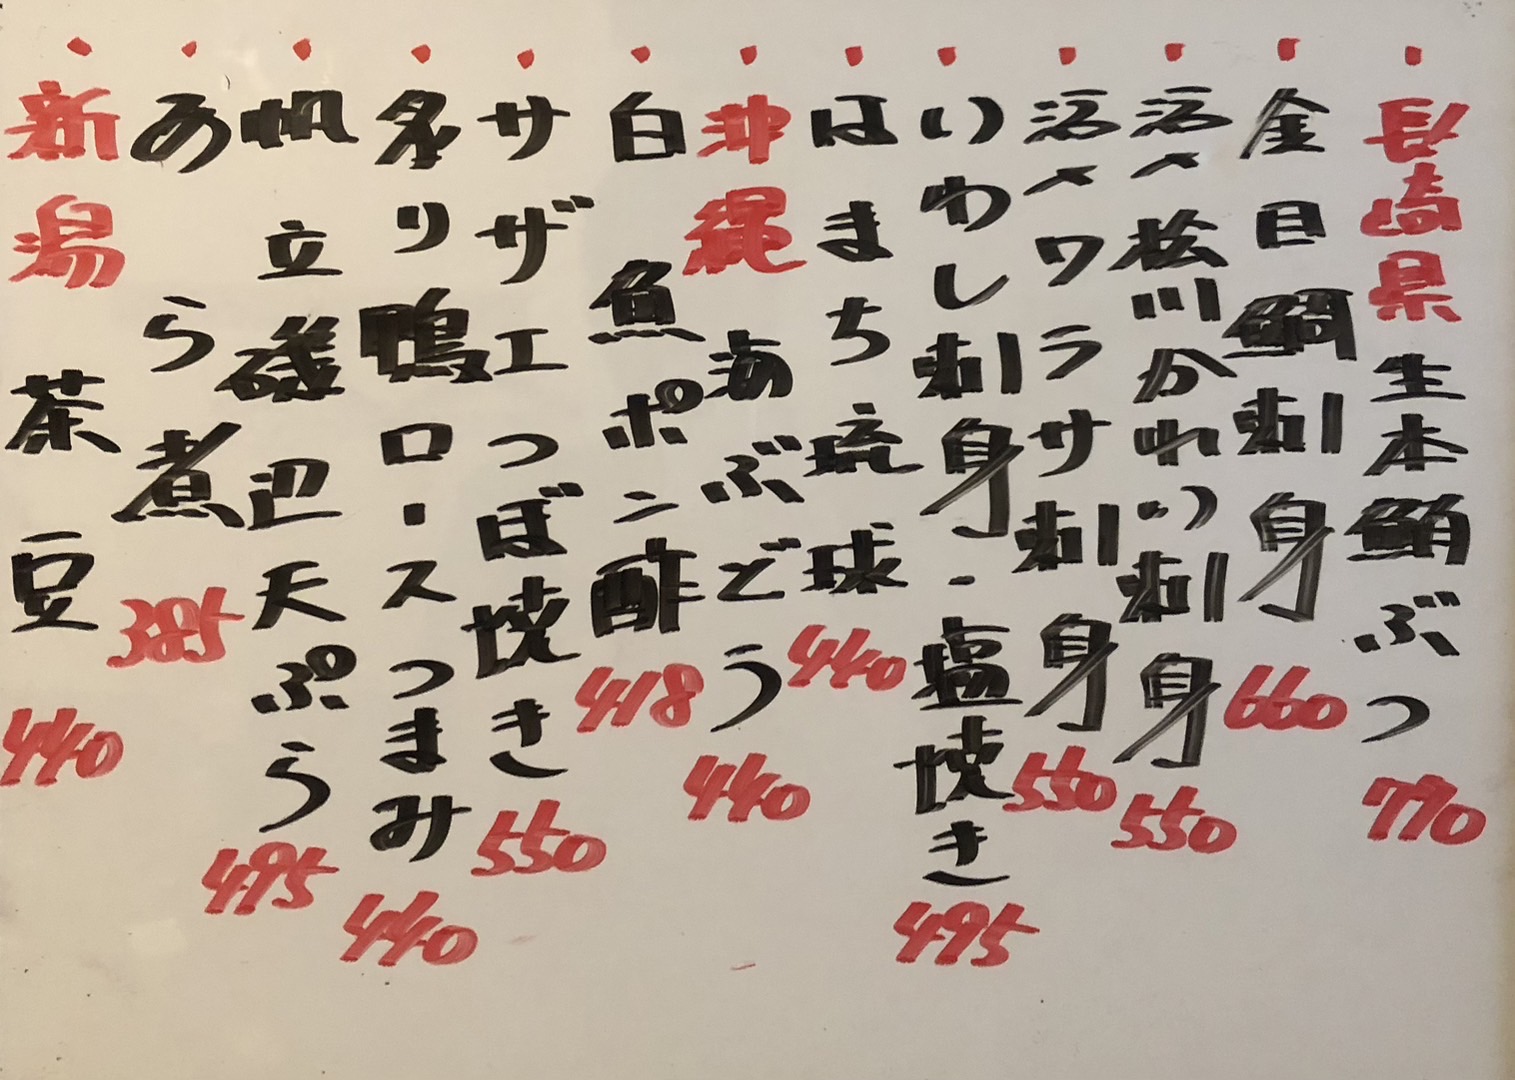 ・長崎県生本鮪ぶつ 770
・金目鯛刺身 660
・活〆松川かれい刺身 550
・活〆ワラサ刺身 550
・いわし刺身・塩焼き 495
・はまち琉球 440
・沖縄海ぶどう 440
・白魚ポン酢 418
・サザエつぼ焼き 550
・炙り鴨ロースつまみ 440
・帆立磯辺天ぷら 495
・あら煮 385
・新潟茶豆 440